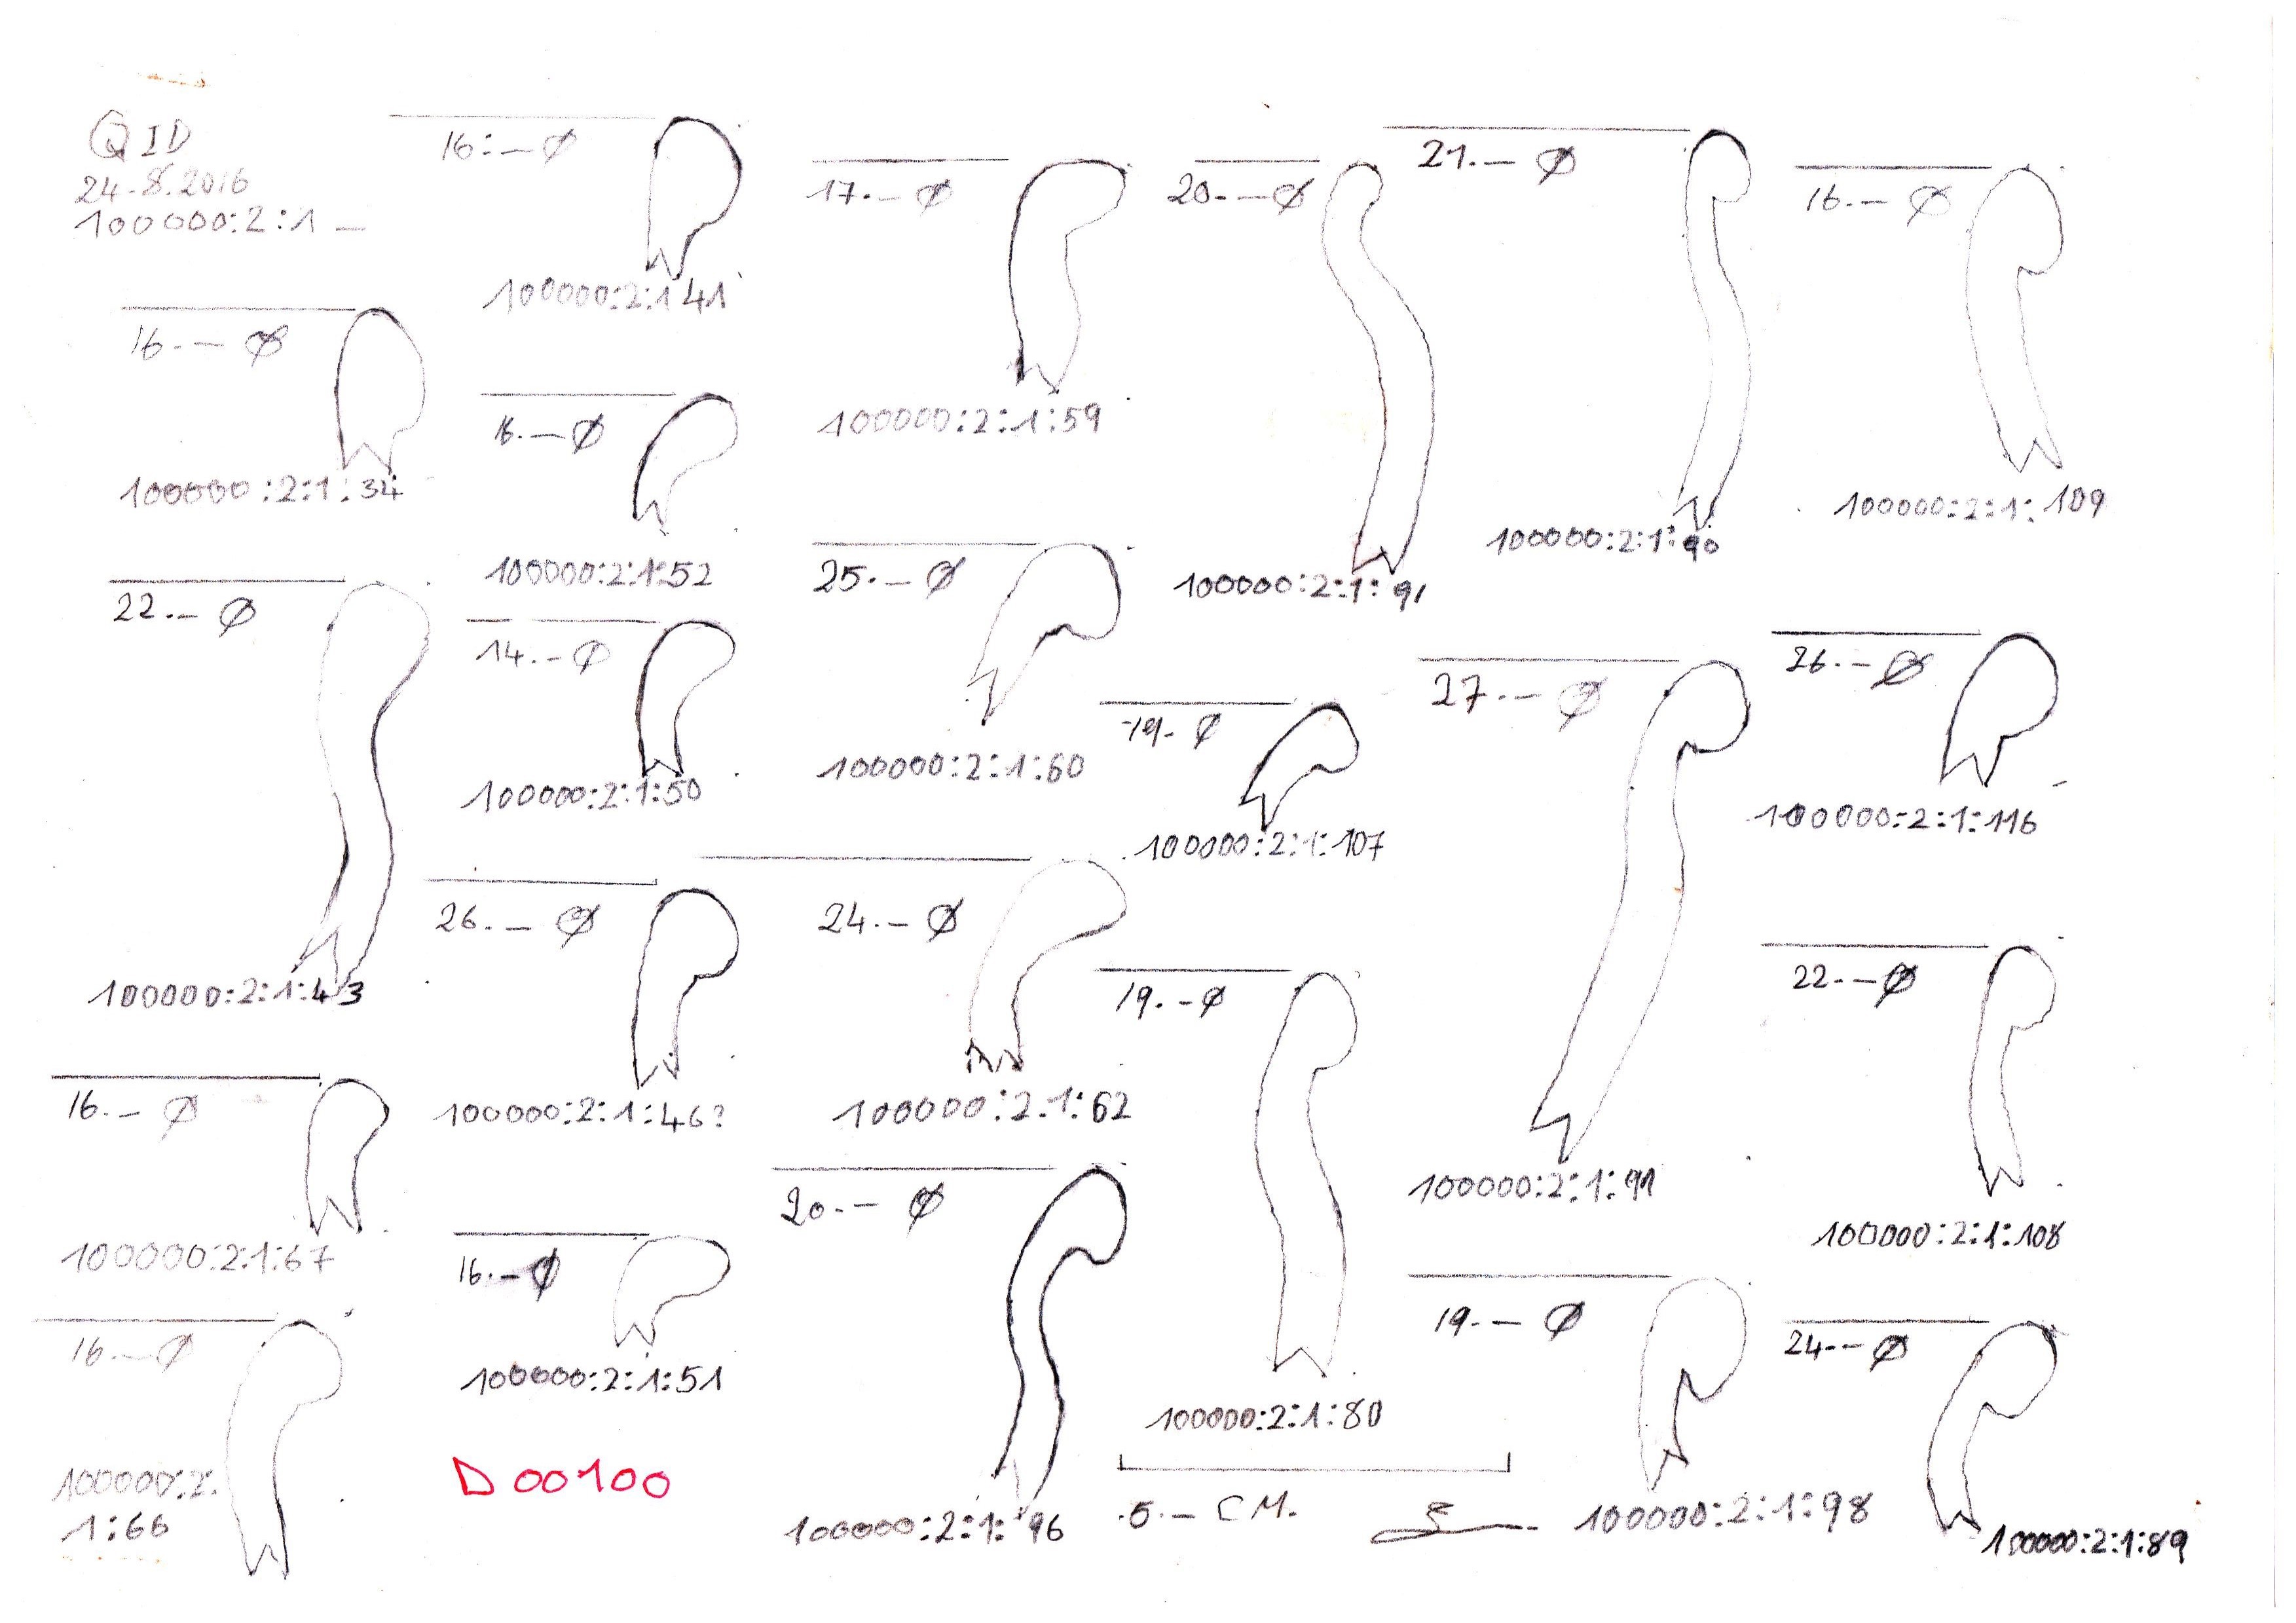 QID
24.8.2016
100000:2:1 –
16. – Ø
100000:2:1:34
22. – Ø
100000:2:1:43
16. – Ø
100000:2:1:67
16. – Ø
100000:2:
1:66
16. – Ø
100000:2:1 41
16. – Ø
100000:2:1:52
14. – Ø
100000:2:1:50
26. – Ø
100000:2:1:46?
16. – Ø
100000:2:1:51
D 00100
17. – Ø
100000:2:1:59
25. – Ø
100000:2:1:60
24. – Ø
100000:2.1:62
20. – Ø
100000:2:1:96
20. – Ø
100000:2:1:91
19. Ø
100000:2:1:107
19. – Ø
100000:2:1:80
5. – CM.
21. – Ø
100000:2:1:90
27. – Ø
100000:2:1:91
19. – Ø
100000:2:1:98
16. – Ø
100000:2:1:109
26. – Ø
100000:2:1:116
22. – Ø
100000:2:1:108
24. – Ø
100000:2:1:89